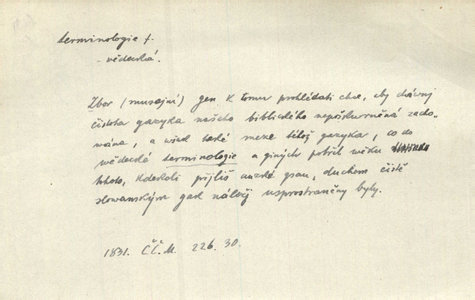 terminologie f.
- vědecká.
Zbor (musejní) gen. k tomu prohlédati chce, aby dávnj
čistota gazyka našeho biblického nepoškwrněná zacho-
wána, a wšak také meze téhož gazyka, co do
wědecké terminologie a giných potřeb wěku
tohoto, kdekoli přjliš auzké gsau, duchem čistě
slowanským gak náležj usprostraněny byly.
1831. ČČM. 226. 30.